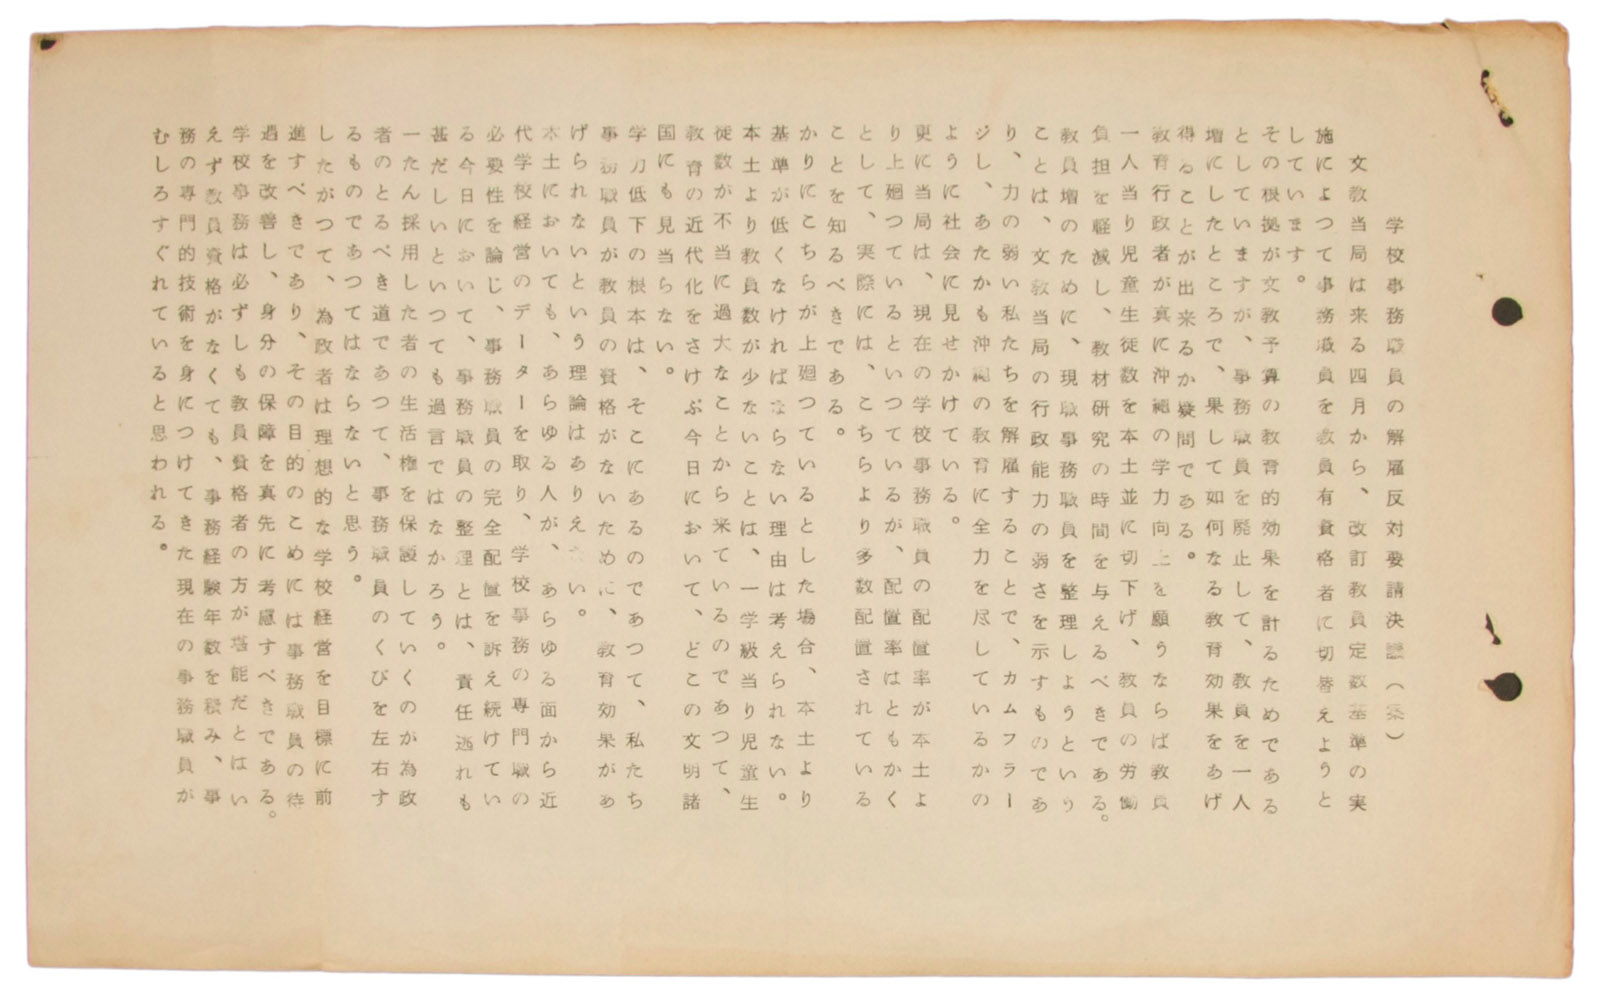 学校事務職員の解雇反対要請決議（案）
文教当局は来る四月から、改訂教員定数基準の実
施によつて事務職員を教員有資格者に切替えようと
しています。
その根拠が文教予算の教育的効果を計るためである
としていますが、事務職員を廃止して、教員を一人
増にしたところで、果して如何なる教育効果をあげ
得ることが出来るか疑問である。
教育行政者が真に沖縄の学力向上を願うならば教員
一人当り児童生徒数を本土並に切下げ、教員の労働
負担を軽減し、教材研究の時間を与えるべきである。
教員増のために、現職事務職員を整理しようという
ことは、文教当局の行政能力の弱さを示すものであ
り、力の弱い私たちを解雇することで、カムフラー
ジし、あたかも沖縄の教育に全力を尽しているかの
ように社会に見せかけている。
更に当局は、現在の学校事務職員の配置率が本土よ
り上廻つているといつているが、配置率はともかく
として、実際には、こちらより多数配置されている
ことを知るべきである。
かりにこちらが上廻つているとした場合、本土より
基準が低くなければならない理由は考えられない。
本土より教員数が少ないことは、一学級当り児童生
徒数が不当に過大なことから来ているのであつて、
教育の近代化をさけぶ今日において、どこの文明諸
国にも見当らない。
学力低下の根本は、そこにあるのであつて、私たち
事務職員が教員の資格がないために、教育効果があ
げられないという理論はありえない。
本土においても、あらゆる人が、あらゆる面から近
代学校経営のデーターを取り、学校事務の専門職の
必要性を論じ、事務職員の完全配置を訴え続けてい
る今日において、事務職員の整理とは、責任逃れも
甚だしいといつても過言ではなかろう。
一たん採用した者の生活権を保護していくのが為政
者のとるべき道であつて、事務職員のくびを左右す
るものであつてはならないと思う。
したがつて、為政者は理想的な学校経営を目標に前
進すべきであり、その目的のこめには事務職員の待
遇を改善し、身分の保障を真先に考慮すべきである。
学校事務は必ずしも教員資格者の方が堪能だとはい
えず教員資格がなくても、事務経験年数を積み、事
務の専門的技術を身につけてきた現在の事務職員が
むしろすぐれていると思われる。